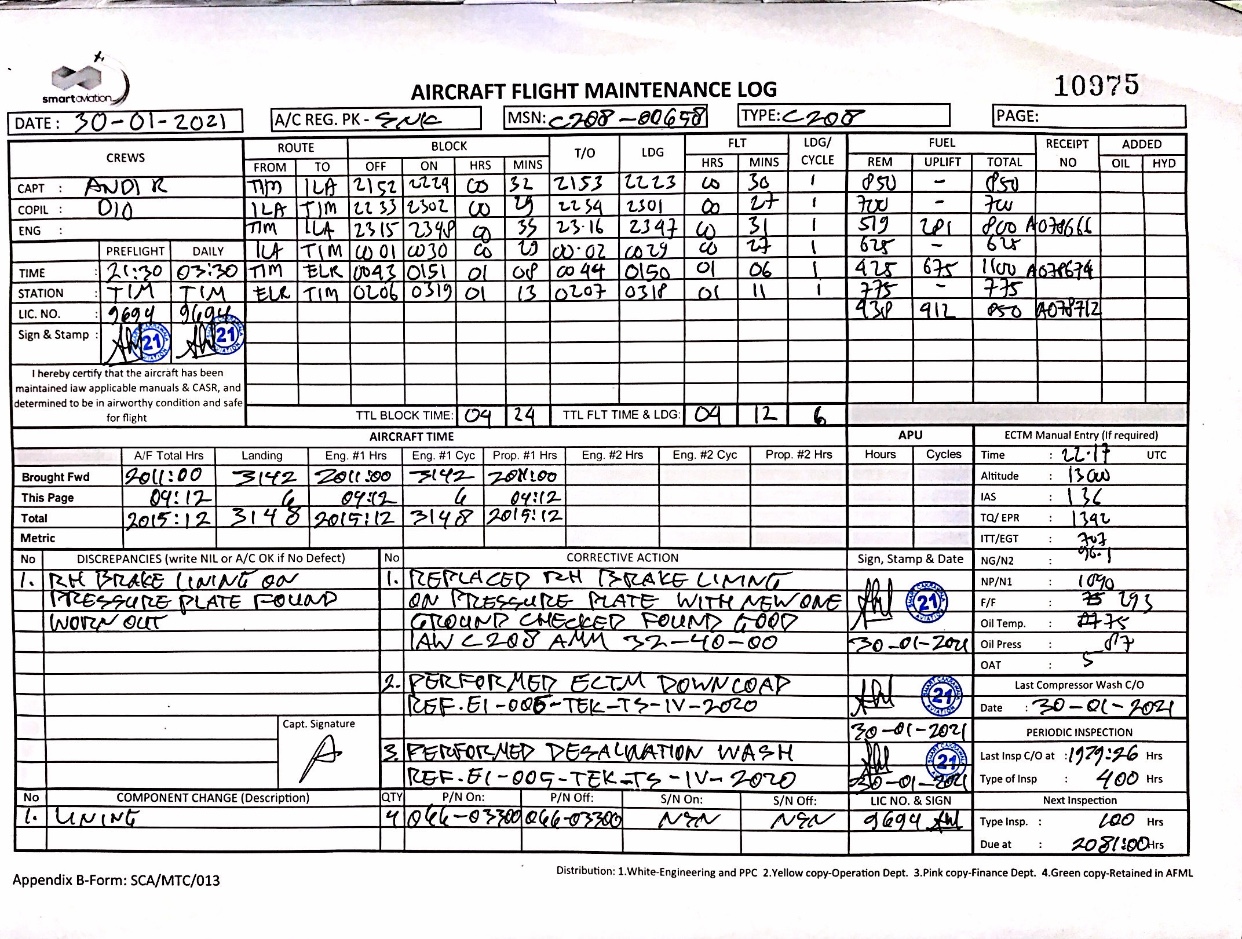 smartaviation
AIRCRAFT FLIGHT MAINTENANCE LOG
10975
DATE: 30-01-2021 A/C REG. PK - SNK MSN: C208-00658 TYPE: C208 PAGE:
CREWS ROUTE BLOCK T/O LDG FLT LDG/ CYCLE FUEL RECEIPT NO ADDED
FROM TO OFF ON HRS MINS HRS MINS REM UPLIFT TOTAL OIL HYD
CAPT : ANDI R TIM ILA 2152 2229 00 32 2153 2223 00 30 1 850 - 850
COPIL : DIO ILA TIM 2233 2302 00 29 2234 2301 00 27 1 700 - 700
ENG : TIM ILA 2315 2348 00 35 23.16 2347 00 31 1 519 281 800 A078666
PREFLIGHT DAILY ILA TIM 0001 0030 00 29 00.02 0029 00 27 1 625 - 625
TIME : 21:30 03:30 TIM ELR 0043 0151 01 08 0044 0150 01 06 1 425 675 1100 A078674
STATION : TIM TIM ELR TIM 0206 0319 01 13 0207 0318 01 11 1 775 - 775
LIC. NO. : 9694 9694 938 912 850 A078712
Sign & Stamp : 21 21
I hereby certify that the aircraft has been
maintained iaw applicable manuals & CASR, and
determined to be in airworthy condition and safe
for flight
TTL BLOCK TIME: 04 24 TTL FLT TIME & LDG: 04 12 6
AIRCRAFT TIME APU ECTM Manual Entry (If required)
A/F Total Hrs Landing Eng. #1 Hrs Eng. #1 Cyc Prop. #1 Hrs Eng. #2 Hrs Eng. #2 Cyc Prop. #2 Hrs Hours Cycles Time : 22.17 UTC
Brought Fwd 2011:00 3142 2011:00 3142 2011:00 Altitude : 13000
This Page 04:12 6 04:12 6 04:12 IAS : 136
Total 2015:12 3148 2015:12 3148 2015:12 TQ/ EPR : 1392
Metric ITT/EGT : 707
No DISCREPANCIES (write NIL or A/C OK if No Defect) No CORRECTIVE ACTION Sign, Stamp & Date NG/N2 : 96.1
1. RH BRAKE LINING ON 1. REPLACED RH BRAKE LINING 21 NP/N1 : 1090
PRESSURE PLATE FOUND ON PRESSURE PLATE WITH NEW ONE F/F : 293
WORN OUT GROUND CHECKED FOUND GOOD Oil Temp. : 75
IAW C208 AMM 32-40-00 30-01-2021 Oil Press : 87
OAT : 5
2. PERFORMED ECTM DOWNLOAD 21 Last Compressor Wash C/O
REF.EI-005-TEK-TS-IV-2020 Date : 30-01-2021
Capt. Signature 30-01-2021 PERIODIC INSPECTION
3. PERFORMED DESALINATION WASH 21 Last Insp C/O at : 1979:26 Hrs
REF.EI-005-TEK-TS-IV-2020 30-01-2021 Type of Insp : 400 Hrs
No COMPONENT CHANGE (Description) QTY P/N On: P/N Off: S/N On: S/N Off: LIC NO. & SIGN Next Inspection
1. LINING 4 066-03300 066-03300 NSN NSN 9694 Type Insp. : 100 Hrs
Due at : 2081:00 Hrs
Distribution: 1.White-Engineering and PPC 2.Yellow copy-Operation Dept. 3.Pink copy-Finance Dept. 4.Green copy-Retained in AFML
Appendix B-Form: SCA/MTC/013